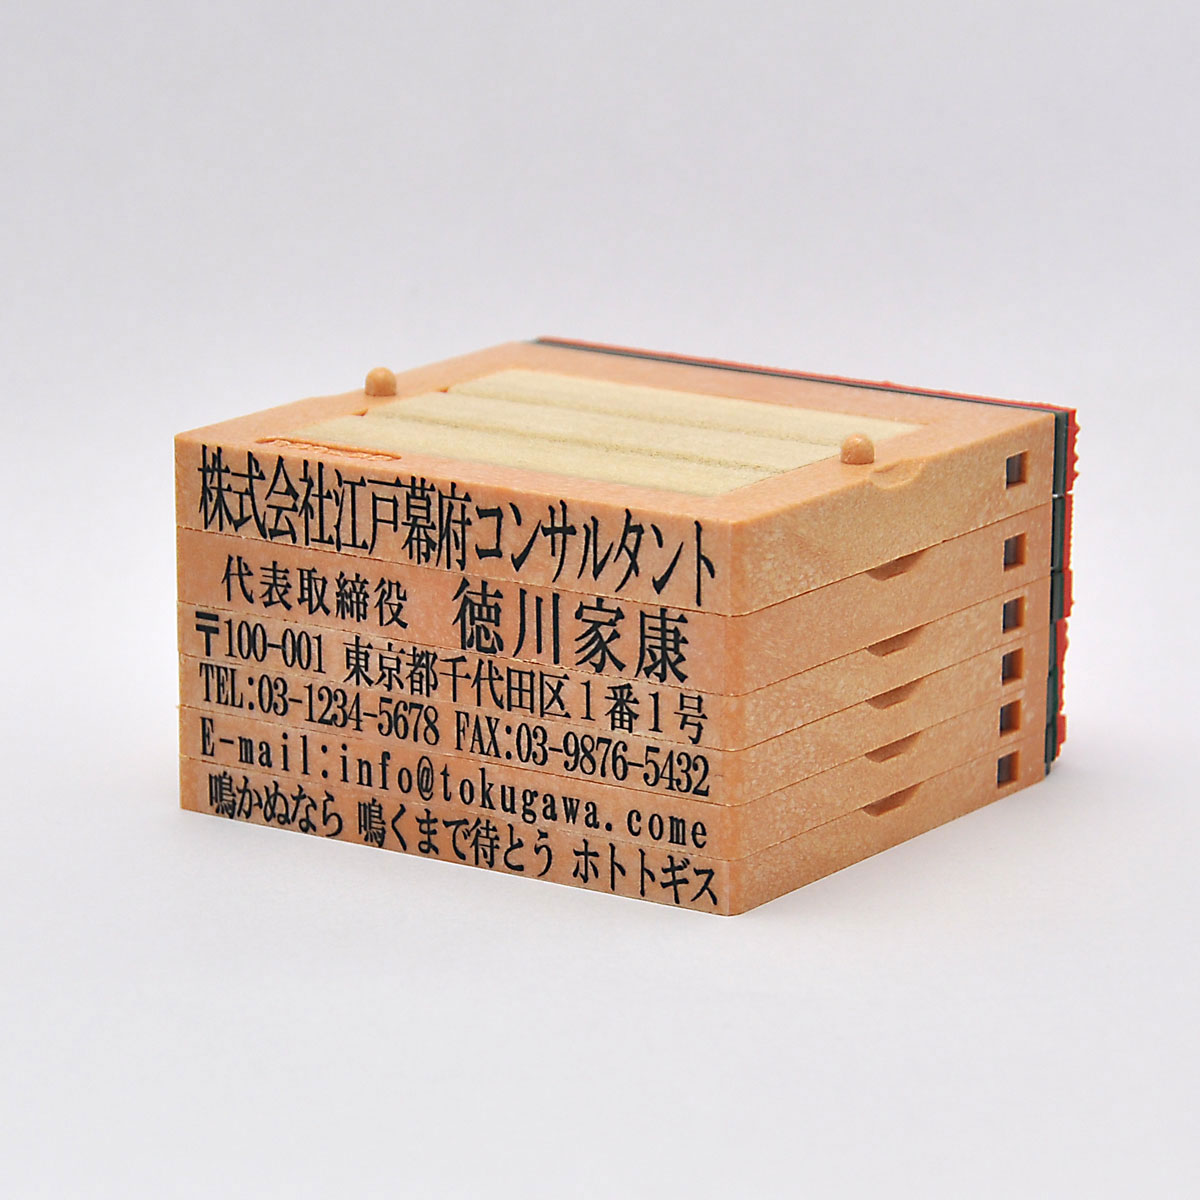 株式会社江戸幕府コンサルタント
代表取締役 徳川家康
〒100-001 東京都千代田区1番1号
TEL:03-1234-5678 FAX:03-9876-5432
E-mail:info@tokugawa.come
鳴かぬなら 鳴くまで待とう ホトトギス